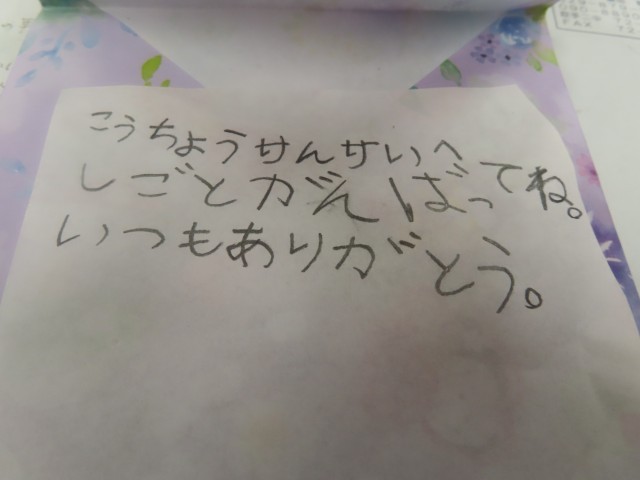 こうちょうサんサいへ
しごとがんばってね。
いつもありがとう。